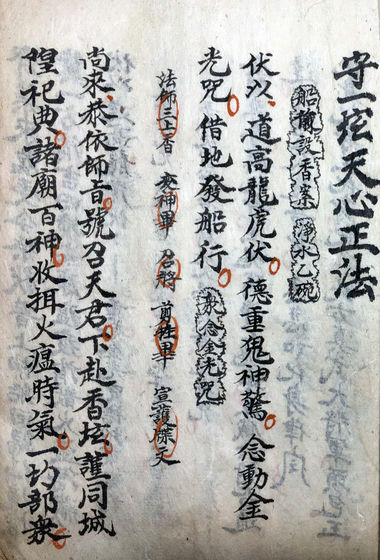 守一坛天心正法
船頭設香案 淨水乙碗
伏以 道高龍虎伏 德重鬼神驚 念動金
光咒 借地發船行 我念金光咒
法師三上香 神畢 召將 剪牲畢 宣護牒文
尚來恭依師音號召天君下赴香坛護同城
隍祀典諸廟百神收火瘟時氣一切部衆